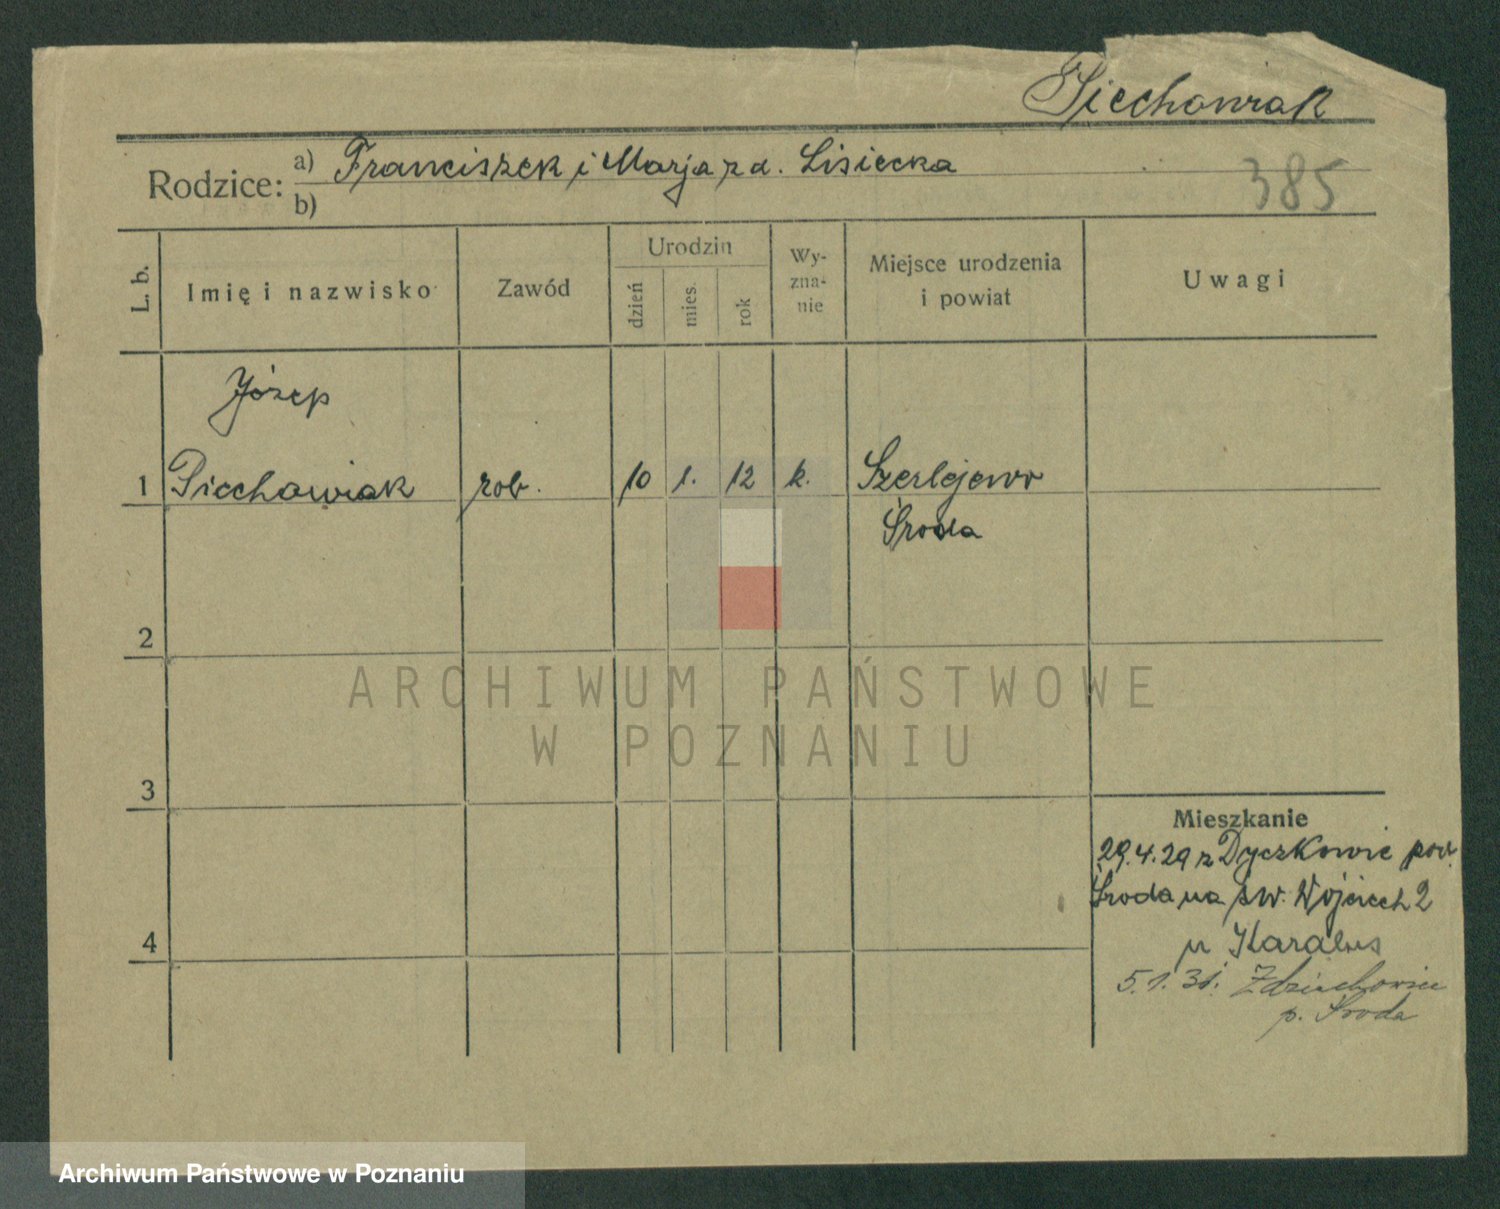 Piechowiak
Rodzice: a) Franciszek i Marja z d. Lisiecka
b)
385
L. b.
Imię i nazwisko
Zawód
Urodzin
dzień
mies.
rok
Wy-
zna-
nie
Miejsce urodzenia
i powiat
Uwagi
Józep
1 Piechowiak rob. 10 1. 12 k. Szerlejewo
Środa
2
3
4
Mieszkanie
29.4.29 z Dyczkowic pow.
Środa na św. Wojciech 2
u Karalus
5.1.31. Zdziechowice
p. Środa
ARCHIWUM PAŃSTWOWE
W POZNANIU
Archiwum Państwowe w Poznaniu